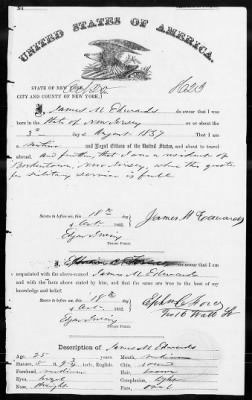 UNITED STATES OF AMERICA.
STATE OF NEW YORK,
CITY AND COUNTY OF NEW YORK,
I, James M. Edwards do swear that I was
born in the State of New Jersey on or about the
3d day of August 1837 that I am
a Native and Loyal Citizen of the United States, and about to travel
abroad. And further that I am a resident of
New Jersey where the quota
for military service is full
Sworn to before me, this 18th day
of Oct. 1862.
James M Edwards
NOTARY PUBLIC.
I,
acquainted with the above-named James M. Edwards and
with the facts above stated by him, and that the same are true to the best of my knowledge
and belief.
Sworn to before me, this 18th day
of Oct. 1862.
NOTARY PUBLIC.
No 16 Wall St
Description of James M. Edwards
Age, 25
Mouth, medium
Stature, 5 ft. inch, English.
Chin, round
Forehead, medium
Hair,
Eyes, hazel
Complexion, light
Nose, straight
Face, oval